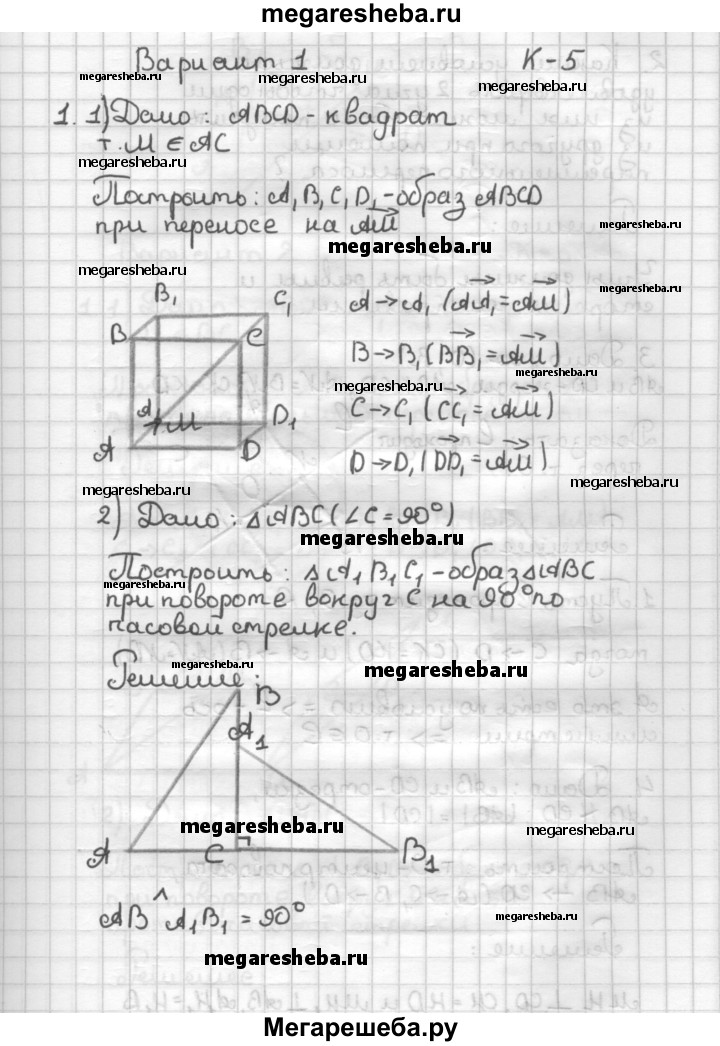 megaresheba.ru
Вариант 1 К-5
megaresheba.ru megaresheba.ru megaresheba.ru
1. 1) Дано: ABCD - квадрат
т. M ∈ AC
megaresheba.ru
Построить: A₁B₁C₁D₁ - образ ABCD
при переносе на AM
megaresheba.ru
megaresheba.ru
megaresheba.ru
B₁ C₁ A → A₁ (AA₁ = AM)
B C B → B₁ (BB₁ = AM)
megaresheba.ru
megaresheba.ru
A₁ M D₁ C → C₁ (CC₁ = AM)
A D D → D₁ (DD₁ = AM)
megaresheba.ru megaresheba.ru
2) Дано: △ABC (∠C = 90°)
megaresheba.ru
Построить: △A₁B₁C₁ - образ △ABC
megaresheba.ru
при повороте вокруг C на 90° по
часовой стрелке.
megaresheba.ru megaresheba.ru
Решение:
B
A₁
megaresheba.ru megaresheba.ru
A C B₁
AB ^ A₁B₁ = 90°
megaresheba.ru
megaresheba.ru
Мегарешеба.ру